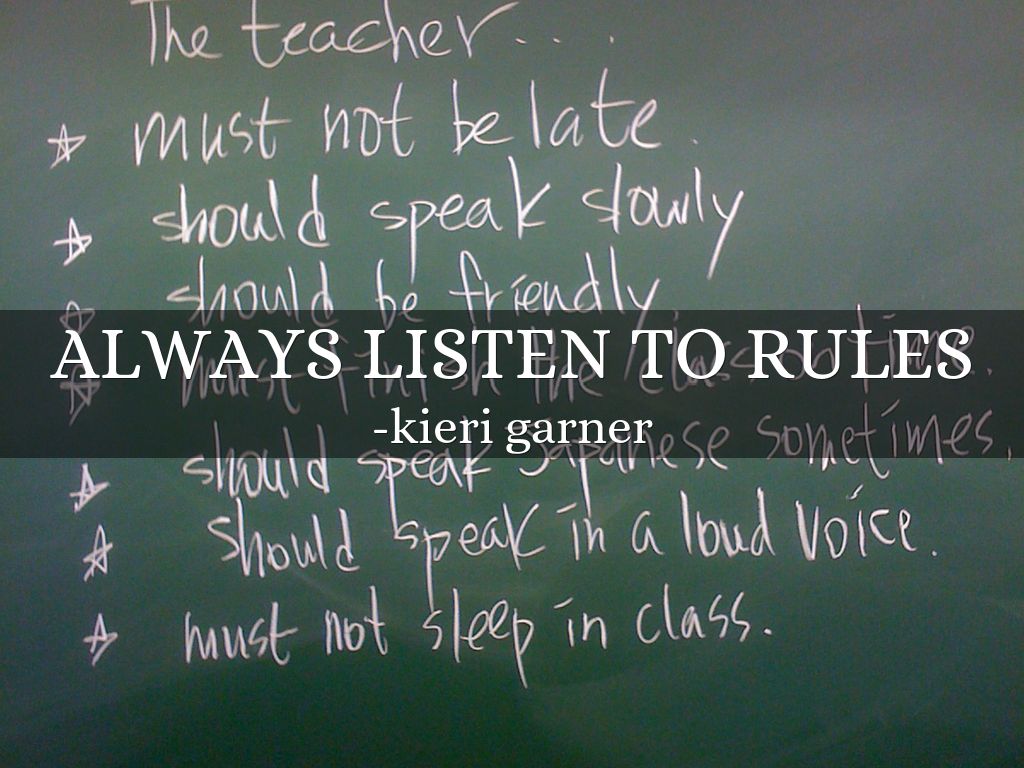 The teacher....
☆ must not be late.
☆ should speak slowly
☆ should be friendly
ALWAYS LISTEN TO RULES
☆ must finish the class on time.
-kieri garner
☆ should speak Japanese sometimes.
☆ should speak in a loud voice.
☆ must not sleep in class.